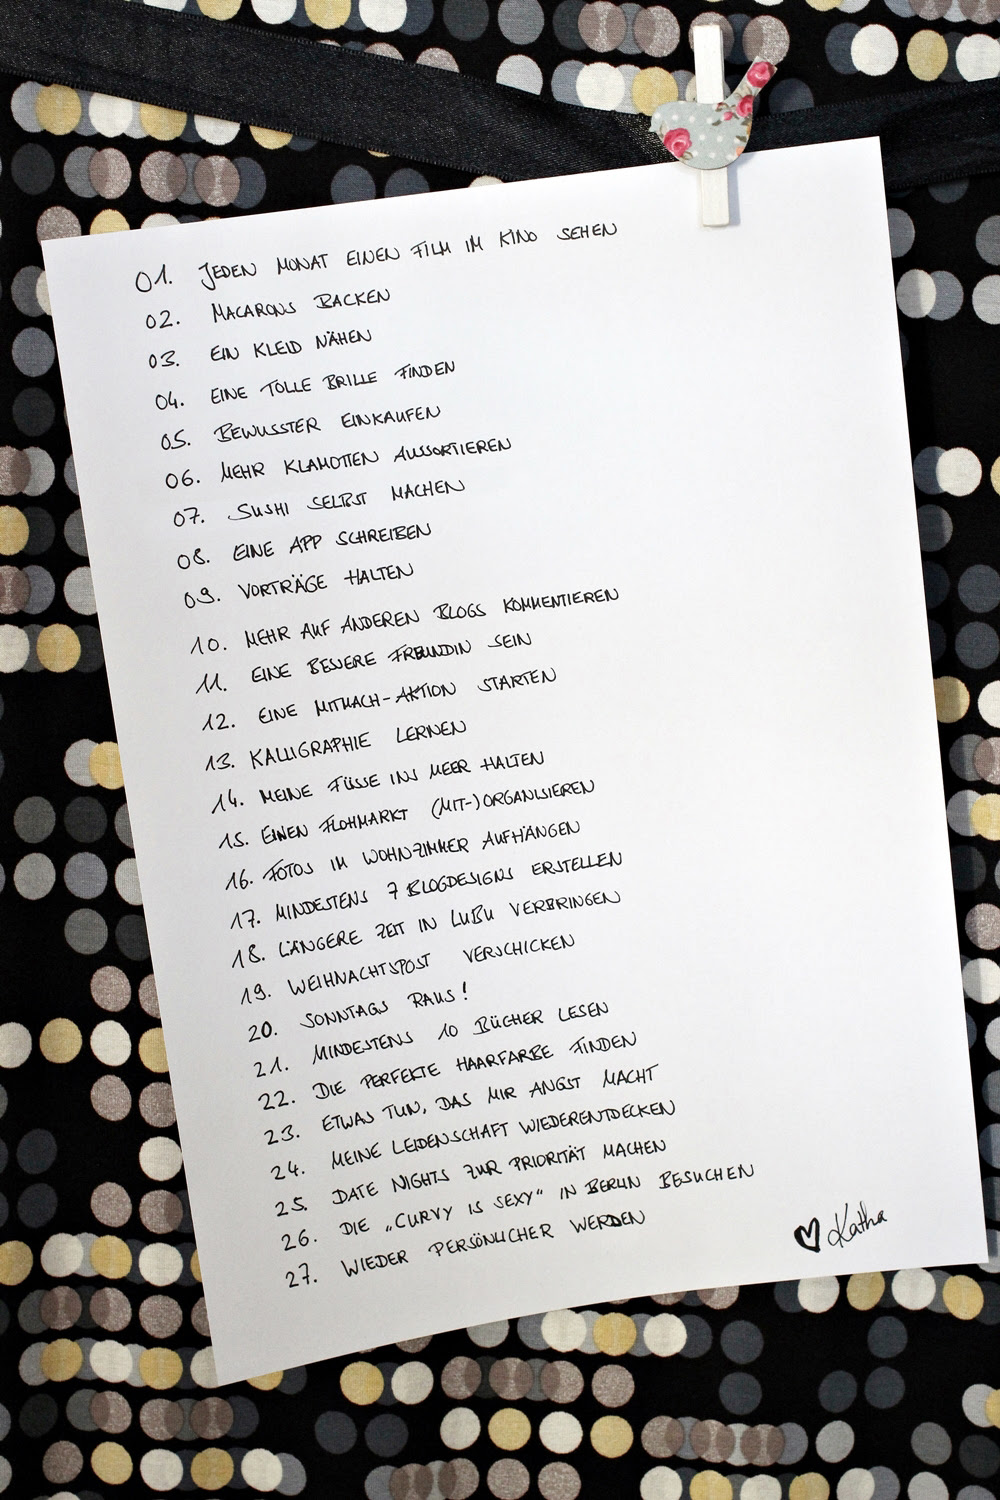 01. JEDEN MONAT EINEN FILM IM KINO SEHEN
02. MACARONS BACKEN
03. EIN KLEID NÄHEN
04. EINE TOLLE BRILLE FINDEN
05. BEWUSSTER EINKAUFEN
06. MEHR KLAMOTTEN AUSSORTIEREN
07. SUSHI SELBST MACHEN
08. EINE APP SCHREIBEN
09. VORTRÄGE HALTEN
10. MEHR AUF ANDEREN BLOGS KOMMENTIEREN
11. EINE BESSERE FREUNDIN SEIN
12. EINE MITMACH-AKTION STARTEN
13. KALLIGRAPHIE LERNEN
14. MEINE FÜSSE INS MEER HALTEN
15. EINEN FLOHMARKT (MIT-)ORGANISIEREN
16. FOTOS IM WOHNZIMMER AUFHÄNGEN
17. MINDESTENS 7 BLOGDESIGNS ERSTELLEN
18. LÄNGERE ZEIT IN LUBU VERBRINGEN
19. WEIHNACHTSPOST VERSCHICKEN
20. SONNTAGS RAUS!
21. MINDESTENS 10 BÜCHER LESEN
22. DIE PERFEKTE HAARFARBE FINDEN
23. ETWAS TUN, DAS MIR ANGST MACHT
24. MEINE LEIDENSCHAFT WIEDERENTDECKEN
25. DATE NIGHTS ZUR PRIORITÄT MACHEN
26. DIE „CURVY IS SEXY“ IN BERLIN BESUCHEN
27. WIEDER PERSÖNLICHER WERDEN
♥ Katha